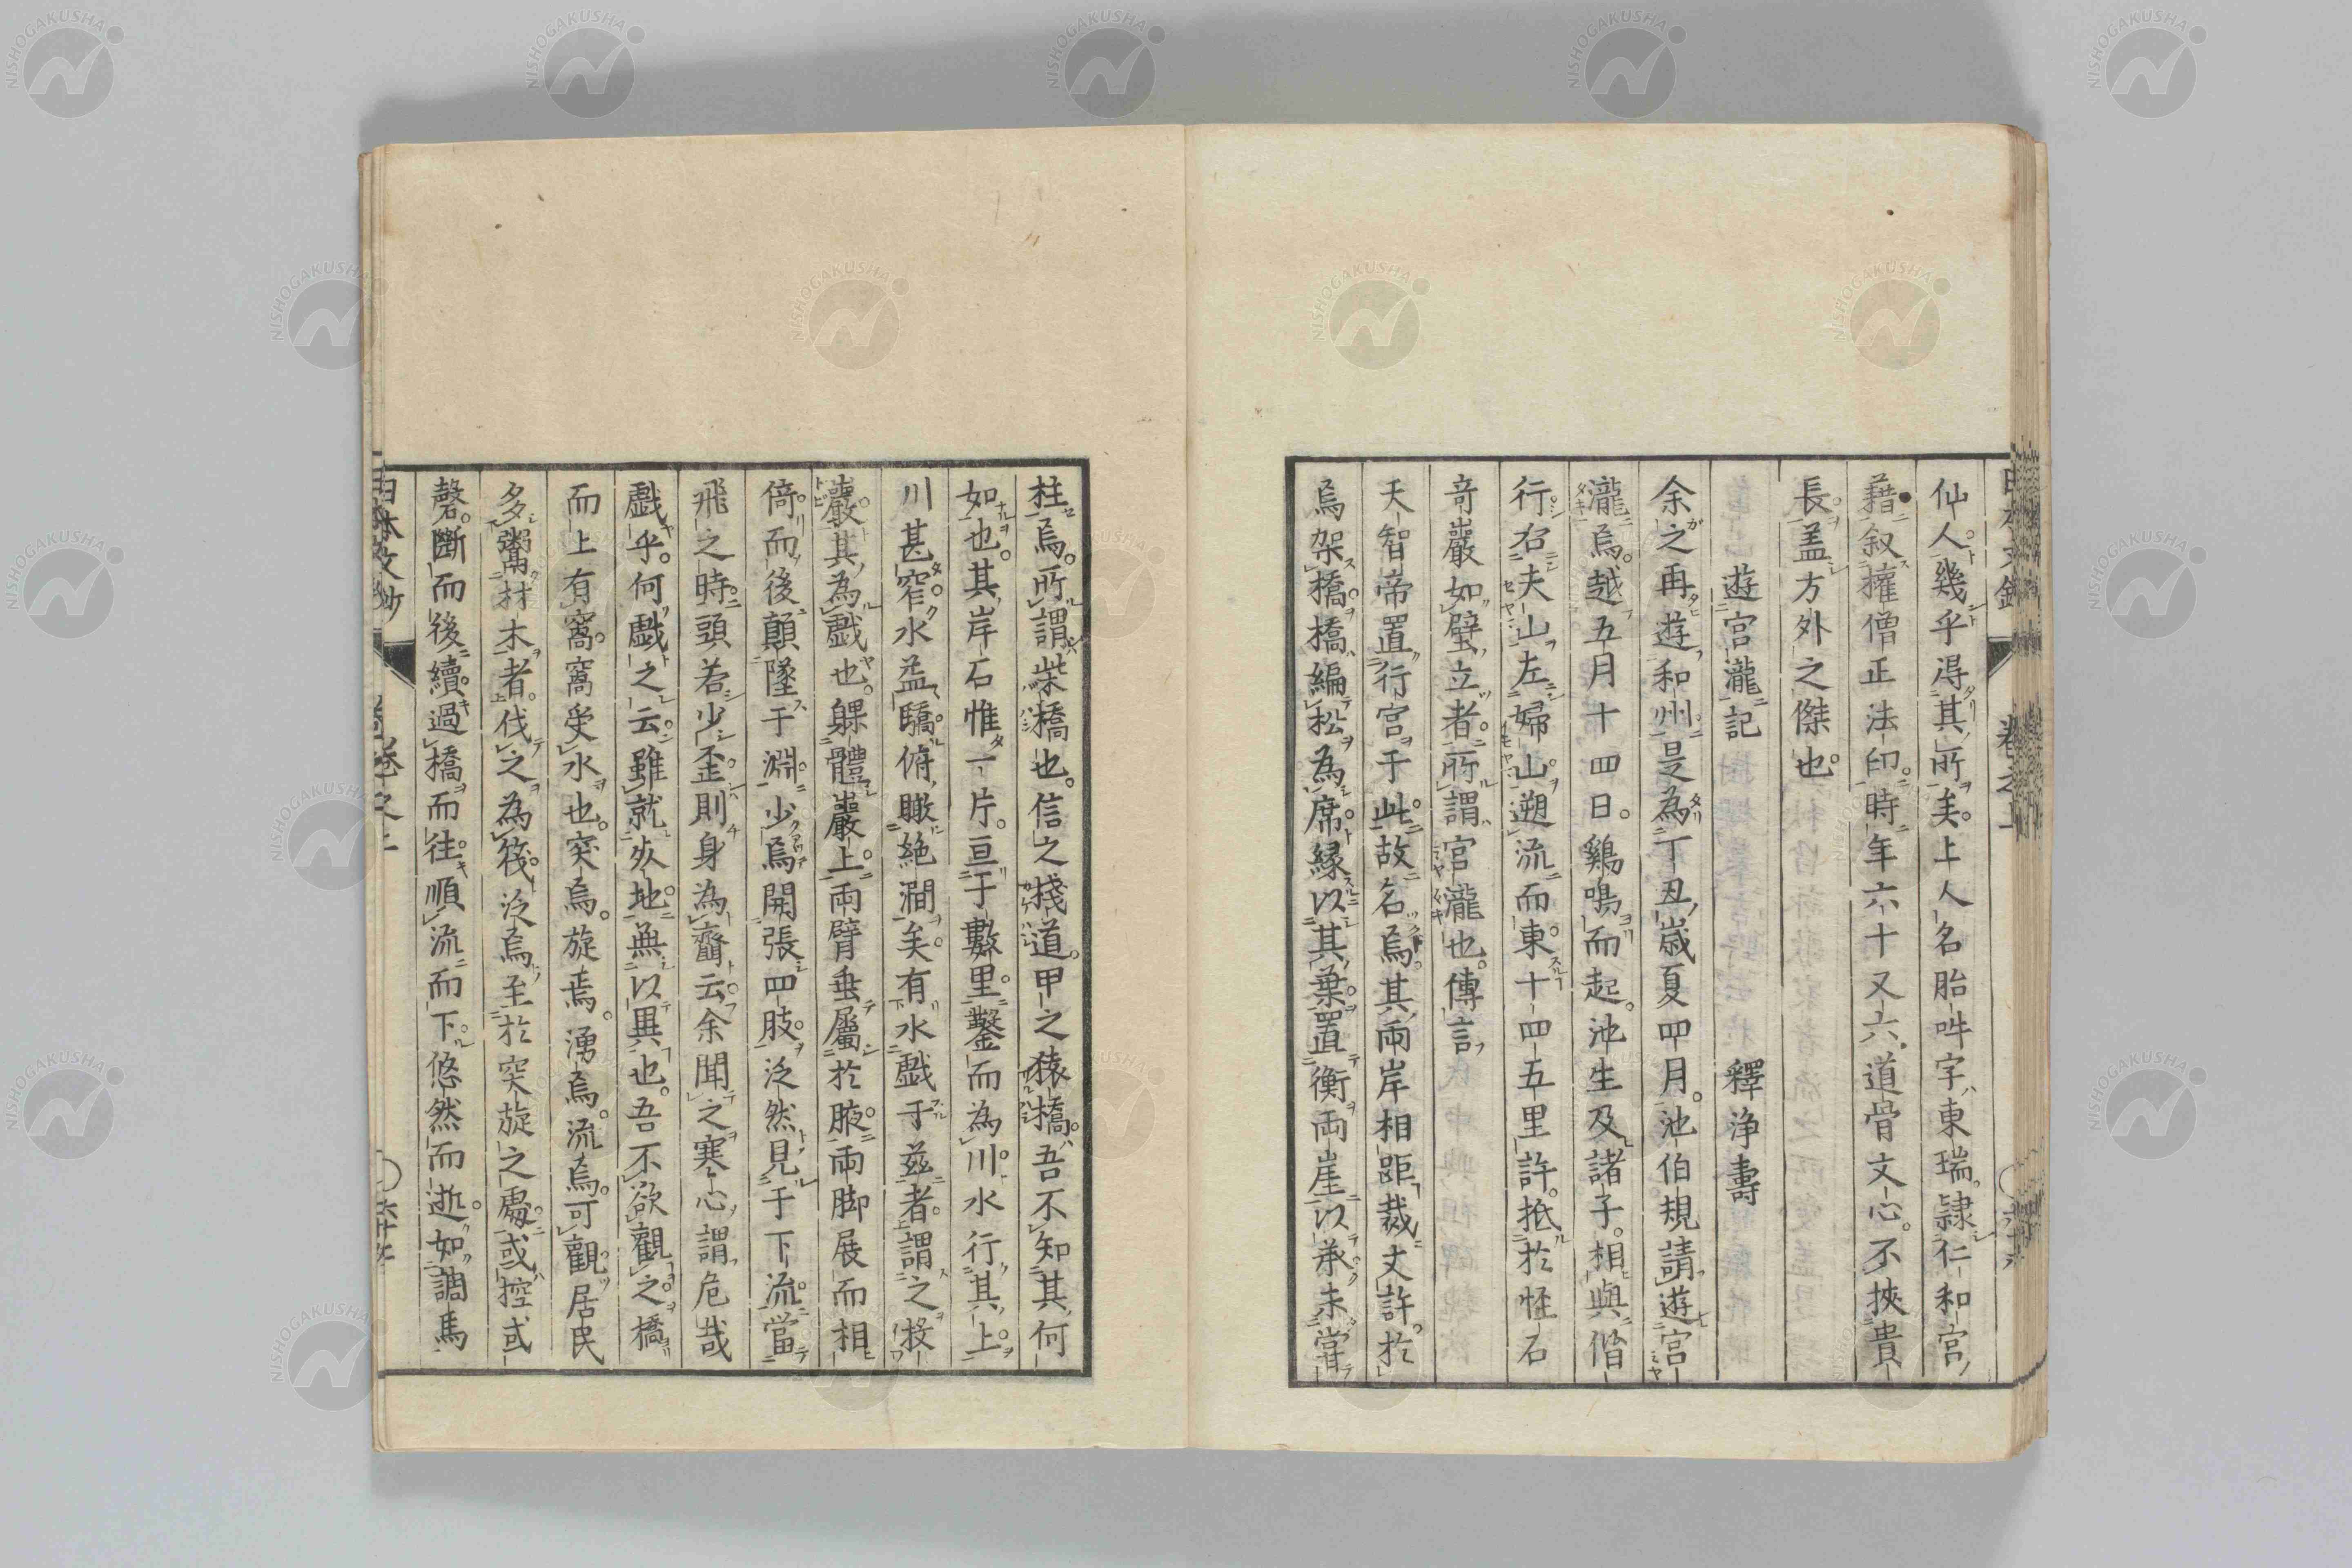 仙人幾乎得其所矣上人名胎吽字東瑞隷仁和宮
藉叙擢僧正法印時年六十又六道骨文心不挾貴
長盖方外之傑也
遊宮瀧記　釋浄壽
余之再遊和州是為丁丑歳夏四月池伯規請遊宮
瀧焉越五月十四日鷄鳴而起池生及諸子相與偕
行右夫山左婦山遡流而東十四五里許抵於怪石
奇巖如壁立者所謂宮瀧也傳言
天智帝置行宮于此故名焉其兩岸相距裁丈許於
焉架橋橋編松為席縁以其葉置衡兩崖以承未嘗
柱焉所謂柴橋也信之棧道甲之猿橋吾不知其何
如也其岸石惟一片亘于數里鑿而為川水行其上
川甚窄水益驕俯瞰絶澗矣有水戯于茲者謂之技
巖其為戯也躶體巖上兩臂垂屬於腋兩脚展而相
倚而後顛墜于淵少焉開張四肢泛然見于下流當
飛之時頭若少歪則身為齏云余聞之寒心謂危哉
戯乎何戯之云雖就夾地無以異也吾不欲觀之橋
而上有窩窩受水也突焉旋焉湧焉流焉可觀居民
多鬻材木者伐之為筏泛焉至於突旋之處或控或
磬斷而後續過橋而往順流而下悠然而逝如調馬
日本文鈔　卷之上